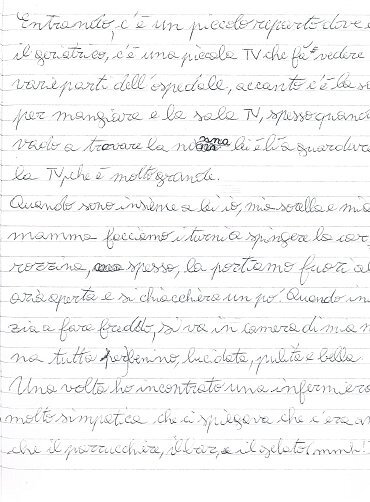 Entrando, c'è un piccolo reparto dove c
il geriatrico, c'è una piccola TV che fa vedere
varie parti dell'ospedale, accanto c'è la s
per mangiare e la sala TV, spesso quand
vado a trovare la nonna lei è lì a guardare
la TV, che è molto grande.
Quando sono insieme a lei io, mia sorella e mia
mamma facciamo i turni a spingere la car
rozzina, spesso, la portiamo fuori al
aria aperta e si chiacchera un po'. Quando ini
zia a fare freddo, si va in camera di ma n
na tutta perbenino, lucidata, pulita e bella.
Una volta ho incontrato una infermiera
molto simpatica che ci spiegava che c'era an
che il parrucchiere, il bar, e il gelato (mmh!